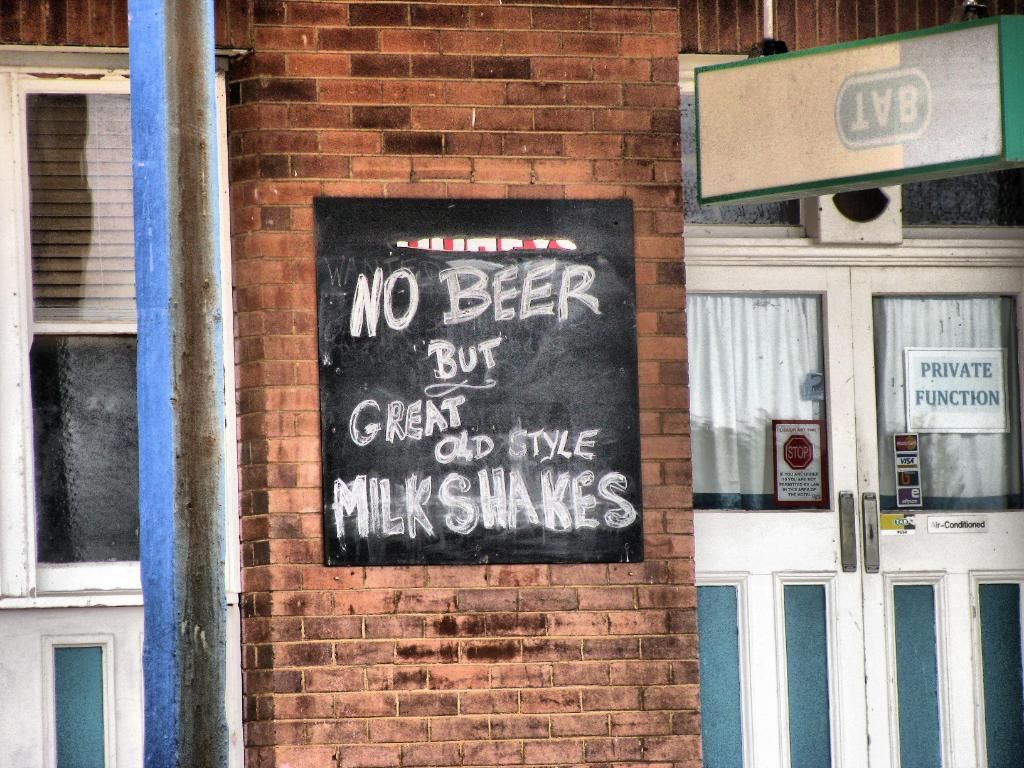 NO BEER
BUT
GREAT
OLD STYLE
MILKSHAKES
TAB
PRIVATE
FUNCTION
STOP
VISA
Air-Conditioned